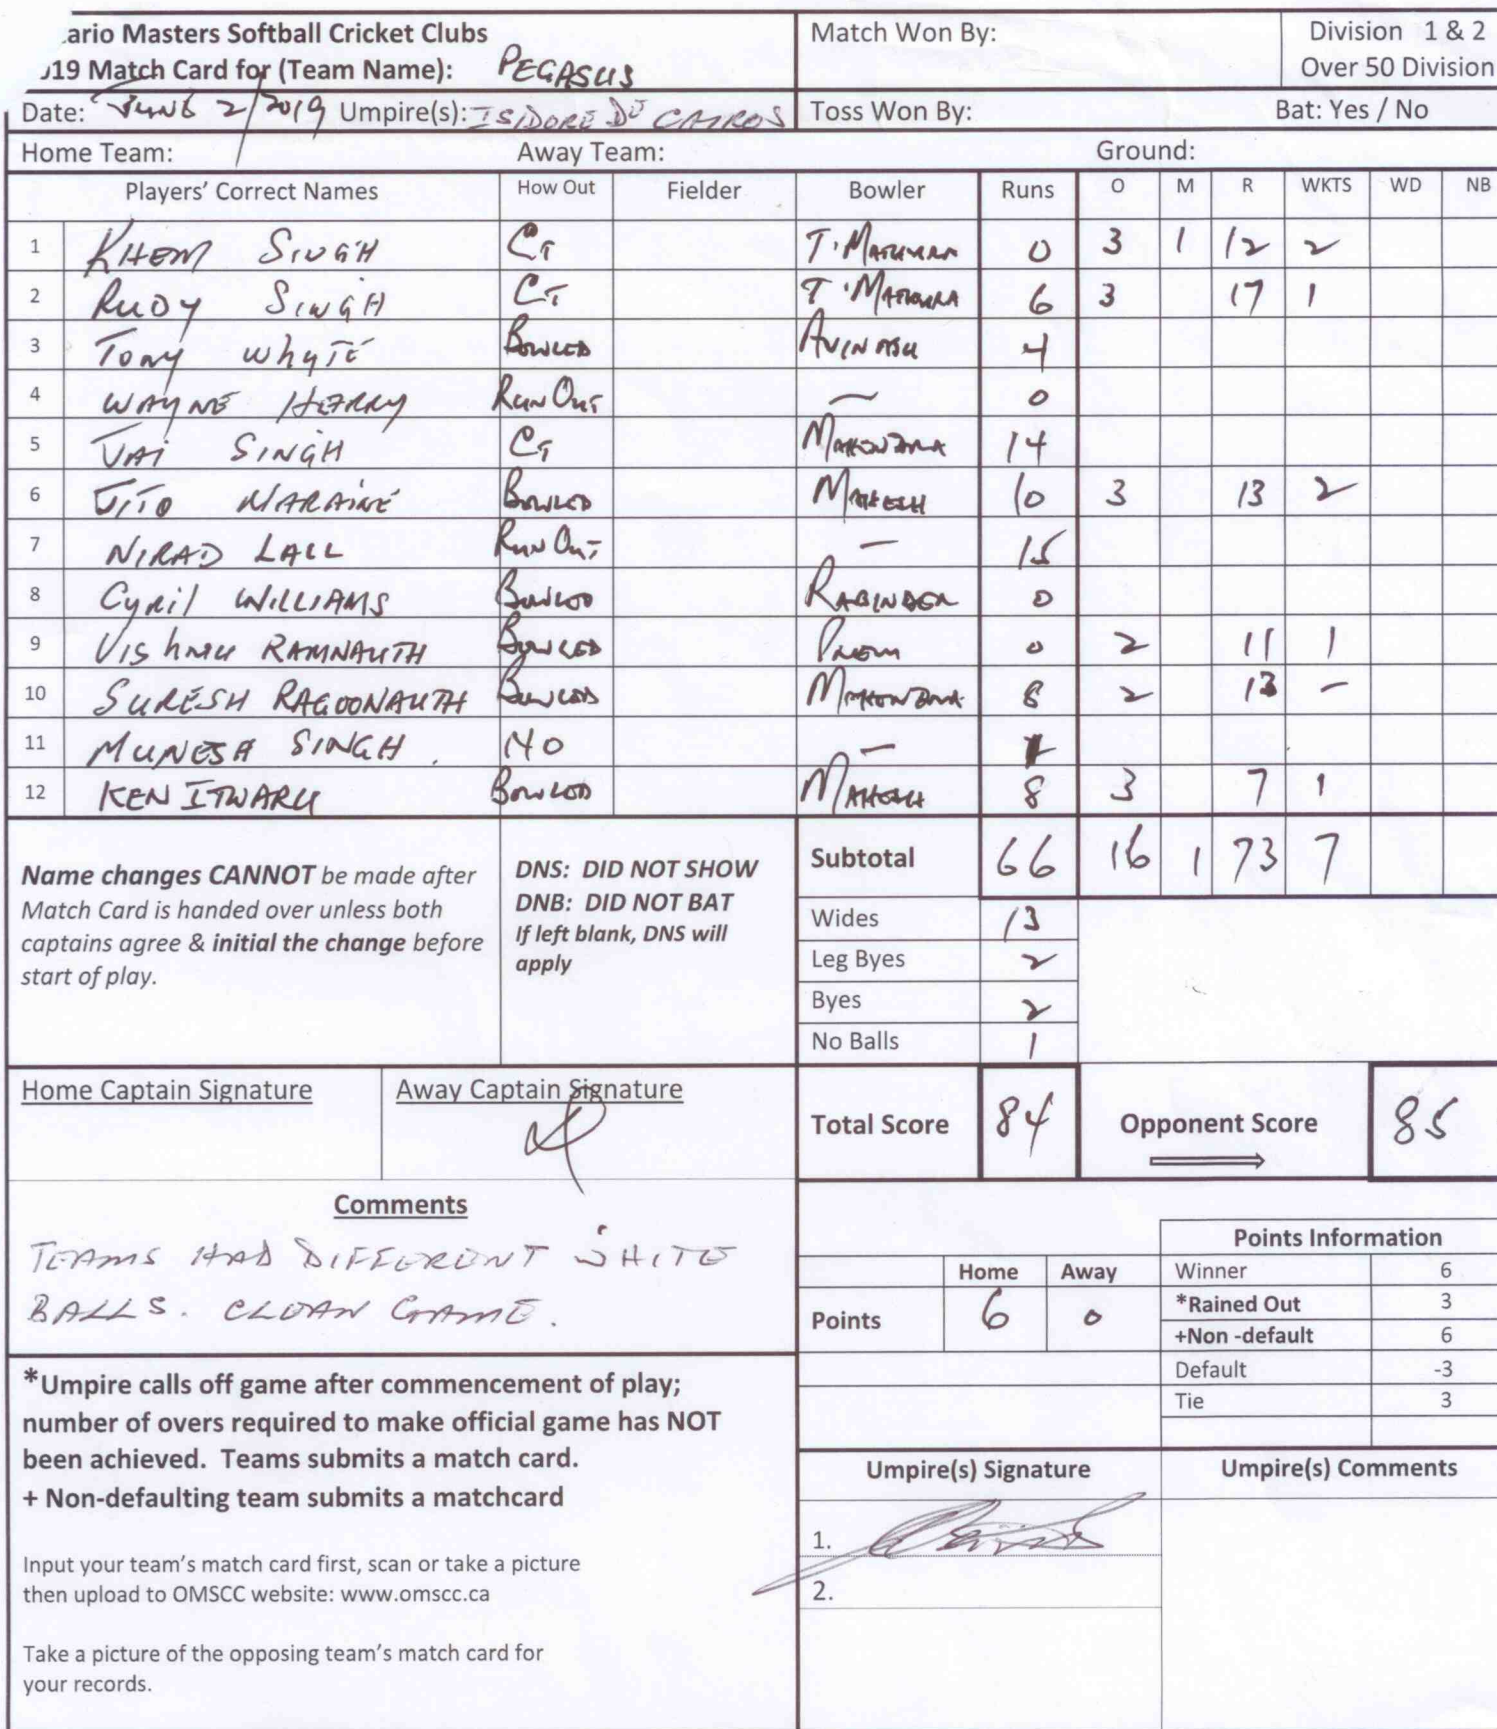 ario Masters Softball Cricket Clubs
19 Match Card for (Team Name): PEGASUS
Match Won By:
Division 1 & 2
Over 50 Division
Date: JUNE 2/2019 Umpire(s): ISIDORE
Toss Won By: Bat: Yes / No
Home Team: Away Team: Ground:
Players' Correct Names How Out Fielder Bowler Runs O M R WKTS WD NB
1 KHEM SINGH CT T. 0 3 1 12 2
2 RUDY SINGH CT T. 6 3 17 1
3 TONY WHYTE BOWLED AVINASH 4
4 WAYNE RUN OUT — 0
5 JAI SINGH CT MAHENDRA 14
6 JITO NARAINE BOWLED MAHESH 10 3 13 2
7 NIRAD LALL RUN OUT — 15
8 CYRIL WILLIAMS BOWLED RABINDER 0
9 VISHNU RAMNAUTH BOWLED PREM 0 2 11 1
10 SURESH RAGOONAUTH BOWLED MAHENDRA 8 2 13 —
11 MUNESH SINGH. NO — 1
12 KEN ITWARU BOWLED MAHESH 8 3 7 1
Name changes CANNOT be made after
Match Card is handed over unless both
captains agree & initial the change before
start of play.
DNS: DID NOT SHOW
DNB: DID NOT BAT
If left blank, DNS will
apply
Subtotal 66 16 1 73 7
Wides 13
Leg Byes 2
Byes 2
No Balls 1
Home Captain Signature Away Captain Signature
Total Score 84 Opponent Score 85
Comments
TEAMS HAD DIFFERENT WHITE
BALLS. CLEAN GAME.
Points Information
Home Away Winner 6
Points 6 0 *Rained Out 3
+Non -default 6
Default -3
Tie 3
*Umpire calls off game after commencement of play;
number of overs required to make official game has NOT
been achieved. Teams submits a match card.
+ Non-defaulting team submits a matchcard
Input your team's match card first, scan or take a picture
then upload to OMSCC website: www.omscc.ca
Take a picture of the opposing team's match card for
your records.
Umpire(s) Signature Umpire(s) Comments
1.
2.